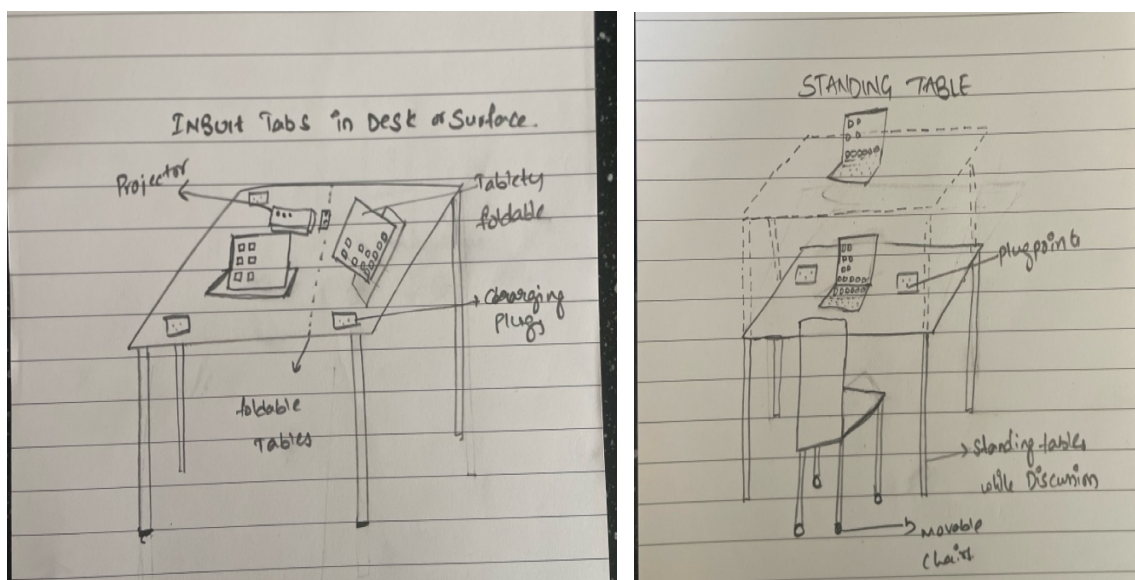 INBUIT Tabs in Desk or Surface.
Projector
Tablety
foldable
Charging
Plugs
foldable
Tables
STANDING TABLE
plugpoints
Standing tables
while Discussion
Movable
Chairs